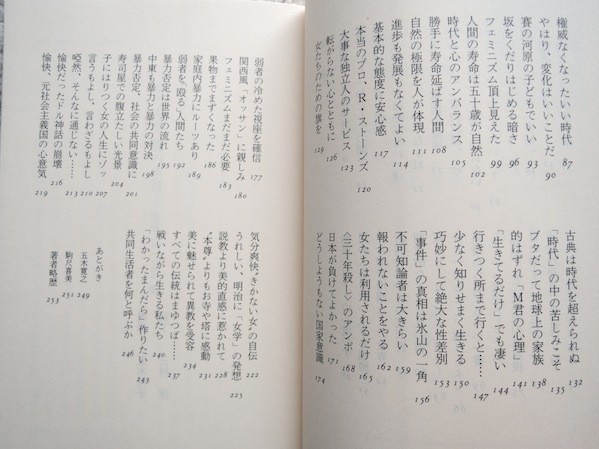 権威なくなったいい時代 87
やはり、変化はいいことだ 90
賽の河原の子どもでいい 93
坂をくだりはじめる暗さ 96
フェミニズム頂上見えた 99
人間の寿命は五十歳が自然 102
時代と心のアンバランス 105
勝手に寿命延ばす人間 108
自然の極限を人が体現 111
進歩も発展もなくてよい 114
基本的な態度に安心感 117
本当のプロ、R・ストーンズ 120
大事な独立人のサービス 123
転がらない心とともに 126
女たちのための旗を 129
古典は時代を超えられぬ 132
「時代」の中の苦しみこそ 135
ブタだって地球上の家族 138
的はずれ「M君の心理」 141
「生きてるだけ」でも凄い 144
行きつく所まで行くと…… 147
少なく知りせまく生きる 150
巧妙にして絶大な性差別 153
「事件」の真相は氷山の一角 156
不可知論者は大きらい 159
報われないことをやる 162
女たちは利用されるだけ 165
〈三十年殺し〉のアンポ 168
日本が負けてよかった 171
どうしようもない国家意識 174
弱者の冷めた視座を確信 177
関西風「オッサン」に親しみ 180
フェミニズムまだまだ必要 183
果物までまずくなった 186
家庭内暴力にルーツあり 189
弱者を、殴る人間たち 192
暴力否定は世界の流れ 195
中東も暴力と暴力の対決 198
暴力否定、社会の共同意識に 201
寿司屋での腹立たしい光景 204
子にはりつく女の人生にゾッ 207
言うもよし、言わざるもよし 210
啞然、そんなに通じない…… 213
愉快だったドル神話の崩壊 216
愉快、元社会主義国の心意気 219
気分爽快“きかない女”の自伝 222
うれしい、明治に「女学」の発想 225
説教より美的直感に惹かれて 228
“本尊”よりもお寺や塔に感動 231
美に魅せられて異教を受容 234
すべての伝統はまゆつば…… 237
戦いながら生きる私たち 240
「わかったまんだら」作りたい 243
共同生活者を何と呼ぶか 246
あとがき
五木寛之 249
駒尺喜美 251
著者略歴 253